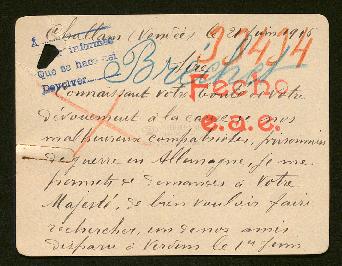 Challans (Vendée) le 21 juin 1916
A
informes
Que se hace aqui
Devolver
39414
Sire
Brichet
Fecho
e.a.e.
Connaissant votre bonté et votre
dévouement à la cause de nos
malheureux compatriotes, prisonniers
de guerre en Allemagne, je me
permets de demander à Votre
Majesté, de bien vouloir faire
rechercher, un de nos amis
disparu à Verdun le 1er Juin